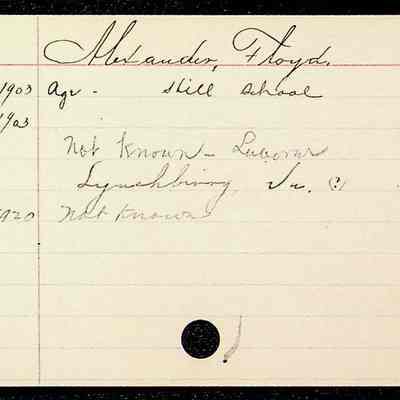 Alexander, Floyd.
1903 Agr - Still School
1903
Not Known - Laborer
Lynchburg, Va. (?)
1920 Not Known